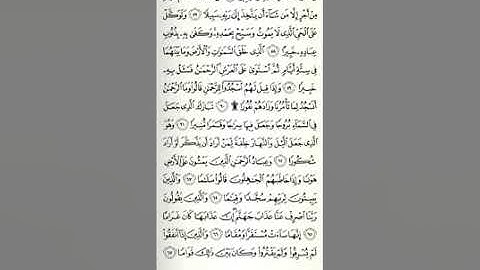 مِنْ أَجْرٍ إِلَّا مَن شَآءَ أَن يَتَّخِذَ إِلَىٰ رَبِّهِۦ سَبِيلًا ۝٥٧ وَتَوَكَّلْ
عَلَى ٱلْحَىِّ ٱلَّذِى لَا يَمُوتُ وَسَبِّحْ بِحَمْدِهِۦ وَكَفَىٰ بِهِۦ بِذُنُوبِ
عِبَادِهِۦ خَبِيرًا ۝٥٨ ٱلَّذِى خَلَقَ ٱلسَّمَٰوَٰتِ وَٱلْأَرْضَ وَمَا بَيْنَهُمَا
فِى سِتَّةِ أَيَّامٍ ثُمَّ ٱسْتَوَىٰ عَلَى ٱلْعَرْشِ ٱلرَّحْمَٰنُ فَسْـَٔلْ بِهِۦ
خَبِيرًا ۝٥٩ وَإِذَا قِيلَ لَهُمُ ٱسْجُدُوا۟ لِلرَّحْمَٰنِ قَالُوا۟ وَمَا ٱلرَّحْمَٰنُ
أَنَسْجُدُ لِمَا تَأْمُرُنَا وَزَادَهُمْ نُفُورًا ۩ ۝٦٠ تَبَارَكَ ٱلَّذِى جَعَلَ
فِى ٱلسَّمَآءِ بُرُوجًا وَجَعَلَ فِيهَا سِرَٰجًا وَقَمَرًا مُّنِيرًا ۝٦١ وَهُوَ
ٱلَّذِى جَعَلَ ٱلَّيْلَ وَٱلنَّهَارَ خِلْفَةً لِّمَنْ أَرَادَ أَن يَذَّكَّرَ أَوْ أَرَادَ
شُكُورًا ۝٦٢ وَعِبَادُ ٱلرَّحْمَٰنِ ٱلَّذِينَ يَمْشُونَ عَلَى ٱلْأَرْضِ
هَوْنًا وَإِذَا خَاطَبَهُمُ ٱلْجَٰهِلُونَ قَالُوا۟ سَلَٰمًا ۝٦٣ وَٱلَّذِينَ
يَبِيتُونَ لِرَبِّهِمْ سُجَّدًا وَقِيَٰمًا ۝٦٤ وَٱلَّذِينَ يَقُولُونَ
رَبَّنَا ٱصْرِفْ عَنَّا عَذَابَ جَهَنَّمَ إِنَّ عَذَابَهَا كَانَ غَرَامًا
۝٦٥ إِنَّهَا سَآءَتْ مُسْتَقَرًّا وَمُقَامًا ۝٦٦ وَٱلَّذِينَ إِذَآ أَنفَقُوا۟
لَمْ يُسْرِفُوا۟ وَلَمْ يَقْتُرُوا۟ وَكَانَ بَيْنَ ذَٰلِكَ قَوَامًا ۝٦٧